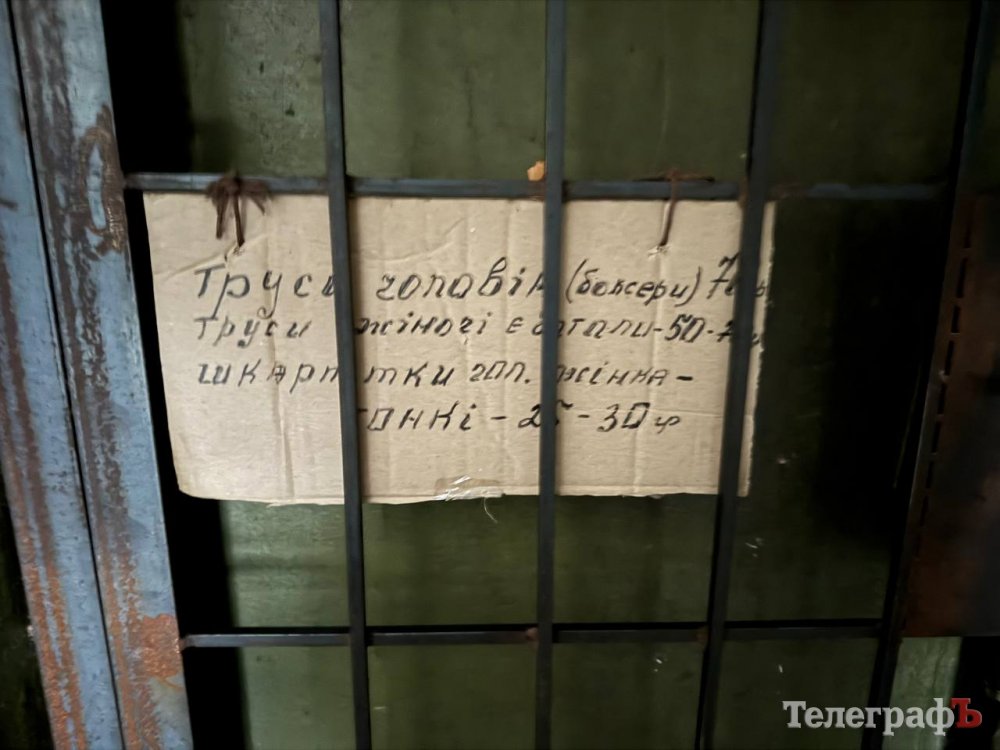 Труси чоловік (боксери)
Труси жіночі є батали-50-
шкарпетки чол. жінка-
тонкі - 25-30 гр
ТелеграфЪ